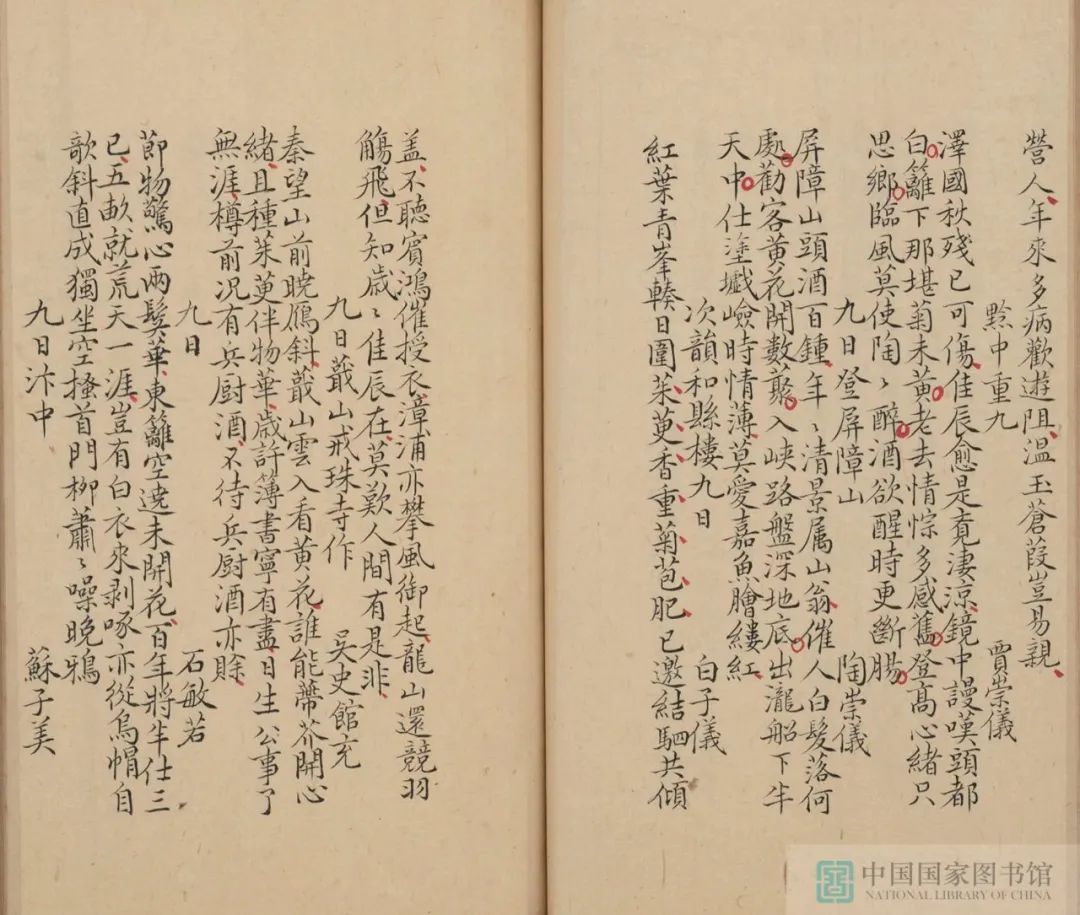 營人年來多病歡遊阻溫玉蒼葭豈易親
黔中重九
賈崇儀
澤國秋殘已可傷佳辰愈是覔淒涼鏡中謾嘆頭都
白籬下那堪菊未黃老去情悰多感舊登高心緒只
思鄉臨風莫使陶〻醉酒欲醒時更斷腸
九日登屏障山
陶崇儀
屏障山頭酒百鍾年〻清景属山翁催人白髮落何
處勸客黃花開數藂入峽路盤深地底出瀧船下半
天中仕塗巇嶮時情薄莫愛嘉魚膾縷紅
次韻和縣樓九日
白子儀
紅葉青峯轃日圍茱萸香重菊苞肥已邀結駟共傾
盖不聽賓鴻催授衣漳浦亦攀風御起龍山還競羽
觴飛但知歲〻佳辰在莫歎人間有是非
九日蕺山戒珠寺作
吴史館充
秦望山前曉鴈斜蕺山雲入看黃花誰能蔕芥開心
緒且種茱萸伴物華歳許簿書寧有盡日生公事了
無涯樽前况有兵厨酒不待兵厨酒亦賖
九日
石敏若
節物驚心兩鬂華東籬空遶未開花百年將半仕三
已五畝就荒天一涯豈有白衣來剥啄亦從烏帽自
歌斜直成獨坐空搔首門柳蕭〻噪晚鴉
九日汴中
蘇子美
中国国家图书馆
NATIONAL LIBRARY OF CHINA